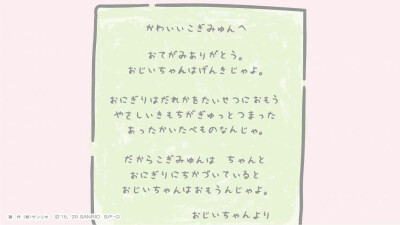 かわいいこぎみゅんへ
おてがみありがとう。
おじいちゃんはげんきじゃよ。
おにぎりはだれかをたいせつにおもう
やさしいきもちがぎゅっとつまった
あったかいたべものなんじゃ。
だからこぎみゅんは ちゃんと
おにぎりにちかづいていると
おじいちゃんはおもうんじゃよ。
おじいちゃんより
著 作 (株)サンリオ Ⓒ'15, '20 SANRIO S/F・G